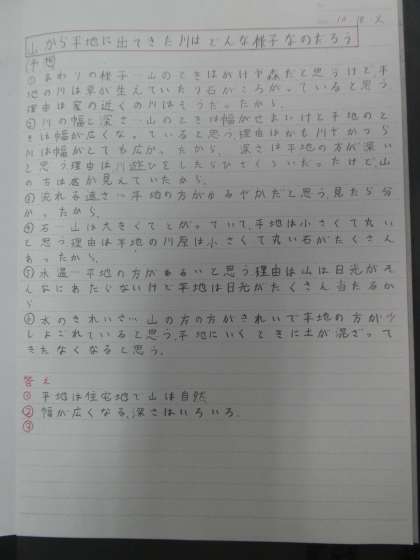 10 18 火
山から平地に出てきた川はどんな様子なのだろう
(予想)
① まわりの様子…山のときはがけや森だと思うけど、平
地の川は草が生えていたり石がころがっていると思う
理由は家の近くの川はそうだったから。
② 川の幅と深さ…山のときは幅がせまいけど平地のと
きは幅が広くなっていると思う、理由はかも川やかつら
川は幅がとても広かったから、深さは平地の方が深い
と思う理由は川遊びをしたらひざくらいだったけど、山
の方は底が見えていたから、
③ 流れる速さ…平地の方がゆるやかだと思う、見たら分
かったから、
④ 石…山は大きくてとがっていて、平地は小さくて丸い
と思う理由は平地の川原は小さくて丸い石がたくさん
あったから。
⑤ 水温…平地の方がぬるいと思う理由は山は日光がそ
んなにあたらないけど平地は日光がたくさん当たるか
ら
⑥ 水のきれいさ…山の方の方がきれいで平地の方が少
しよごれていると思う、平地にいくときに土が混ざって
きたなくなると思う、
答え
① 平地は住宅地で山は自然、
② 幅が広くなる、深さはいろいろ、
③